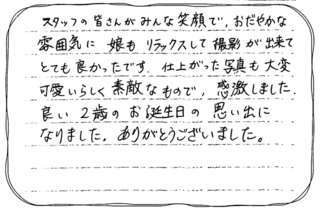 スタッフの皆さんがみんな笑顔で、おだやかな
雰囲気に 娘も リラックスして 撮影 が 出来て
とても良かったです. 仕上がった 写真も 大変
可愛いらしく 素敵なもので, 感激しました.
良い 2歳の お誕生日の 思い出に
なりました. ありがとうございました。